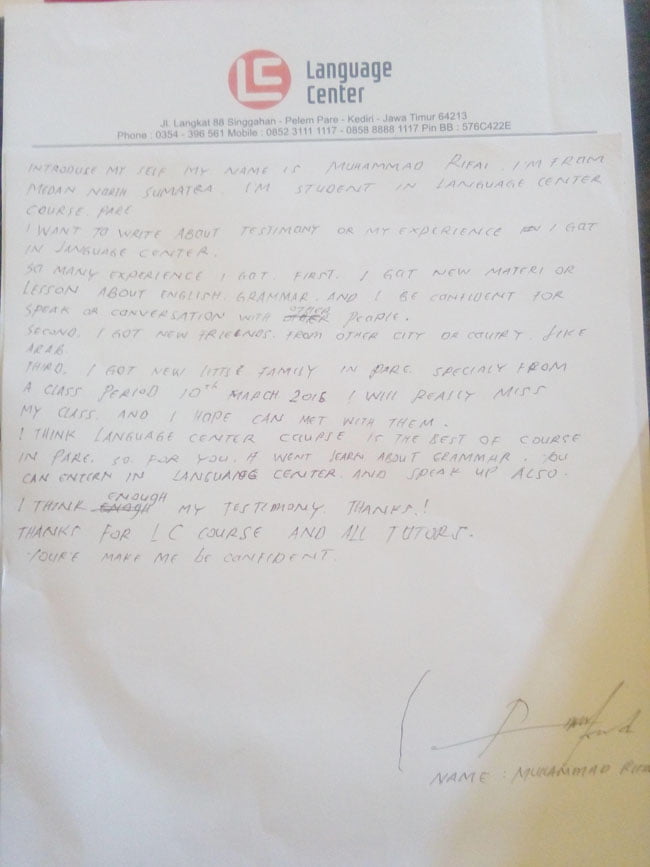 LC Language
Center
Jl. Langkat 88 Singgahan - Pelem Pare - Kediri - Jawa Timur 64213
Phone : 0354 - 396 561 Mobile : 0852 3111 1117 - 0858 8888 1117 Pin BB : 576C422E
INTRODUSE MY SELF MY NAME IS MUHAMMAD RIFAI. I'M FROM
MEDAN NORTH SUMATRA. I'M STUDENT IN LANGUAGE CENTER
COURSE. PARE
I WANT TO WRITE ABOUT TESTIMONY OR MY EXPERIENCE I GOT
IN LANGUAGE CENTER.
SO MANY EXPERIENCE I GOT. FIRST. I GOT NEW MATERI OR
LESSON ABOUT ENGLISH. GRAMMAR. AND I BE CONFIDENT FOR
SPEAK OR CONVERSATION WITH OTHER PEOPLE.
SECOND. I GOT NEW FRIENDS. FROM OTHER CITY OR COUTRY. LIKE
ARAB.
THIRD. I GOT NEW LITTLE FAMILY IN PARE. SPECIALY FROM
A CLASS PERIOD 10th MARCH 2016 I WILL REALLY MISS
MY CLASS. AND I HOPE CAN MET WITH THEM.
I THINK LANGUAGE CENTER COURSE IS THE BEST OF COURSE
IN PARE. SO FOR YOU. IF WENT LEARN ABOUT GRAMMAR. YOU
CAN ENTERN IN LANGUANGE CENTER. AND SPEAK UP ALSO.
I THINK ENOUGH MY TESTIMONY. THANKS.!
THANKS FOR LC COURSE AND ALL TUTORS.
YOURE MAKE ME BE CONFIDENT.
NAME : MUHAMMAD RIFAI